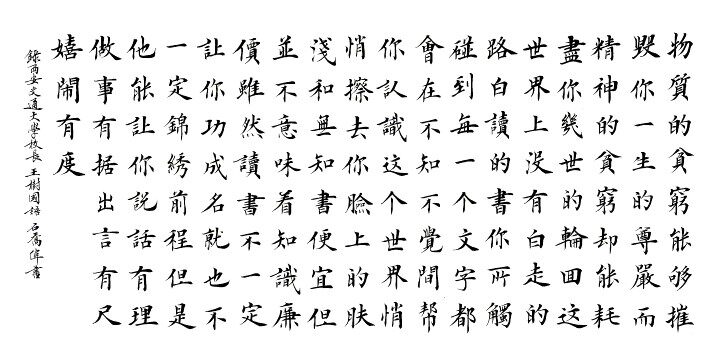 物質的貧窮能够摧
毁你一生的尊嚴而
精神的貧窮却能耗
盡你幾世的輪回这
世界上没有白走的
路白讀的書你所觸
碰到每一个文字都
會在不知不覺間幫
你认識这个世界悄
悄擦去你臉上的肤
淺和無知書便宜但
並不意味着知識廉
價雖然讀書不一定
让你功成名就也不
一定錦綉前程但是
他能让你説話有理
做事有据出言有尺
嬉鬧有度
錄西安交通大學校長王樹國語石喬偉書